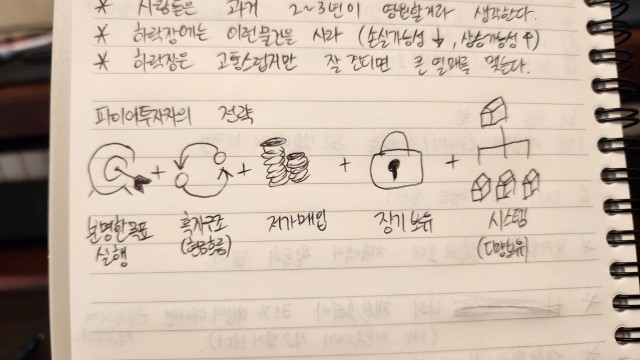 * 사람들은 과거 2~3년이 영원할거라 생각한다.
* 하락장에는 이런물건을 사라 (손실가능성 ↓, 상승가능성 ↑)
* 하락장은 고통스럽지만 잘 견디면 큰 열매를 맺는다.
파이어투자자의 전략
+ + + +
분명한목표 흑자구조 저가매입 장기보유 시스템
실행 (현금흐름) (다량보유)